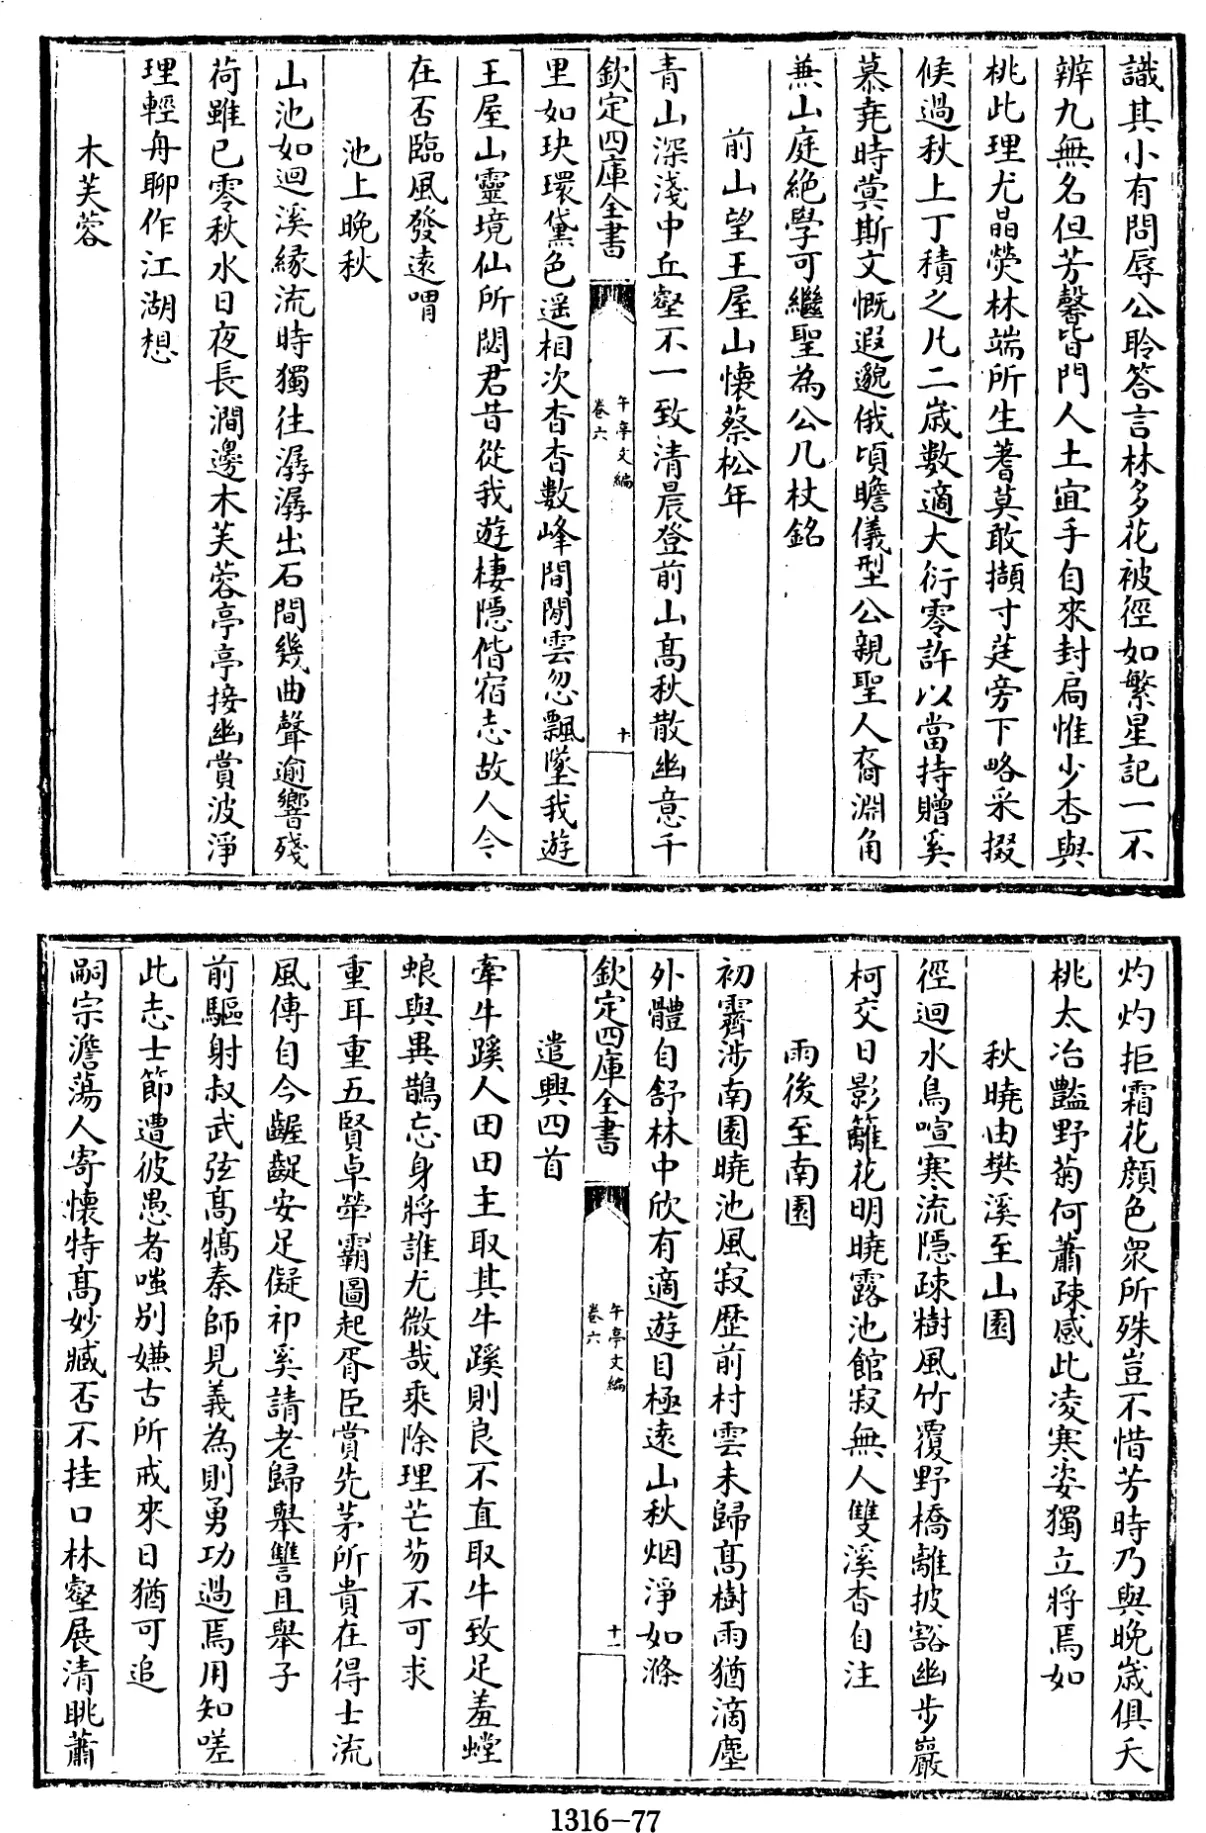 識其小有問辱公聆答言林多花被徑如繁星記一不
辨九無名但芳馨皆門人土宜手自來封扃惟少杏與
桃此理尤晶熒林端所生蓍莫敢擷寸莛旁下略采掇
候過秋上丁積之凡二歲數適大衍零許以當持贈奚
慕堯時蓂斯文慨遐邈俄頃瞻儀型公親聖人裔淵角
蕪山庭絶學可繼聖為公几杖銘
前山望王屋山懷蔡松年
青山深淺中丘壑不一致清晨登前山高秋散幽意千
欽定四庫全書
午亭文編
卷六
十
里如玦環黛色遥相次杳杳數峰間閒雲忽飄墜我遊
王屋山靈境仙所閟君昔從我遊棲隱偕宿志故人今
在否臨風發遠喟
池上晩秋
山池如迴溪縁流時獨往潺潺出石間幾曲聲逾響殘
荷雖已零秋水日夜長澗邊木芙蓉亭亭接幽賞波淨
理輕舟聊作江湖想
木芙蓉
灼灼拒霜花顔色衆所殊豈不惜芳時乃與晩歳俱夭
桃太冶豔野菊何蕭疎感此凌寒姿獨立將焉如
秋曉由樊溪至山園
徑迴水鳥喧寒流隱疎樹風竹覆野橋離披豁幽步巖
柯交日影籬花明曉露池館寂無人雙溪杳自注
雨後至南園
初霽渉南園曉池風寂歴前村雲未歸髙樹雨猶滴塵
外體自舒林中欣有適遊目極遠山秋烟淨如滌
欽定四庫全書
午亭文編
卷六
十一
遣興四首
牽牛蹊人田田主取其牛蹊則良不直取牛致足羞螳
蜋與異鵲忘身將誰尤微哉乘除理芒芴不可求
重耳重五賢卓犖霸圖起胥臣賞先茅所貴在得士流
風傳自今齷齪安足儗祁奚請老歸舉讐且舉子
前驅射叔武弦髙犒秦師見義為則勇功過焉用知嗟
此志士節遭彼愚者嗤别嫌古所戒來日猶可追
嗣宗澹蕩人寄懷特髙妙臧否不挂口林壑展清眺蕭
1316-77